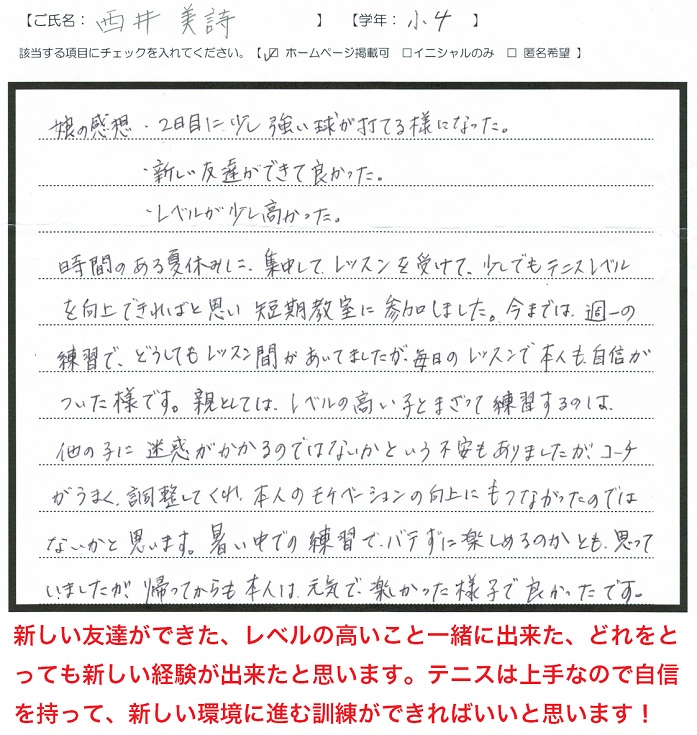 【ご氏名： 西井 美詩 】 【学年： 小4 】
該当する項目にチェックを入れてください。【☑ ホームページ掲載可 □イニシャルのみ □ 匿名希望 】
娘の感想・2日目に少し強い球が打てる様になった。
・新しい友達ができて良かった。
・レベルが少し高かった。
時間のある夏休みに、集中して、レッスンを受けて、少しでもテニスレベル
を向上できればと思い 短期教室に参加しました。今までは、週一の
練習で、どうしてもレッスン間があいてましたが、毎日のレッスンで本人も、自信が
ついた様です。親としては、レベルの高い子とまざって練習するのは、
他の子に迷惑がかかるのではないかという不安もありましたが、コーチ
がうまく、調整してくれ、本人のモチベーションの向上にもつながったのでは
ないかと思います。暑い中での練習で、バテずに楽しめるのかとも、思って
いましたが、帰ってからも本人は、元気で、楽しかった様子で良かったです。
新しい友達ができた、レベルの高いこと一緒に出来た、どれをと
っても新しい経験が出来たと思います。テニスは上手なので自信
を持って、新しい環境に進む訓練ができればいいと思います！